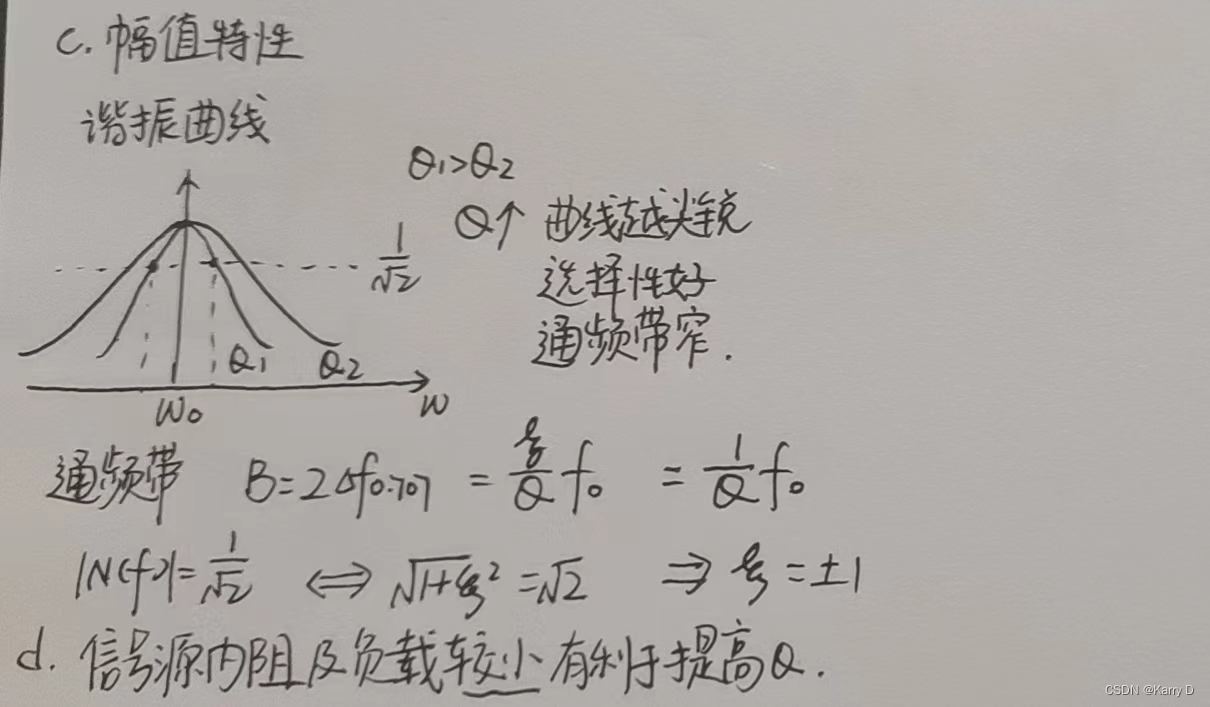 c. 幅值特性
谐振曲线
Q1>Q2
Q↑ 曲线越尖锐
选择性好
通频带窄.
1/√2
Q1 Q2
W0
W
通频带 B=2Δf0.707 = ξ/Q f0 = 1/Q f0
|N(f)|=1/√2 ⇔ √1+ξ² =√2 ⇒ ξ=±1
d. 信号源内阻及负载较小有利于提高Q.
CSDN @Karry D